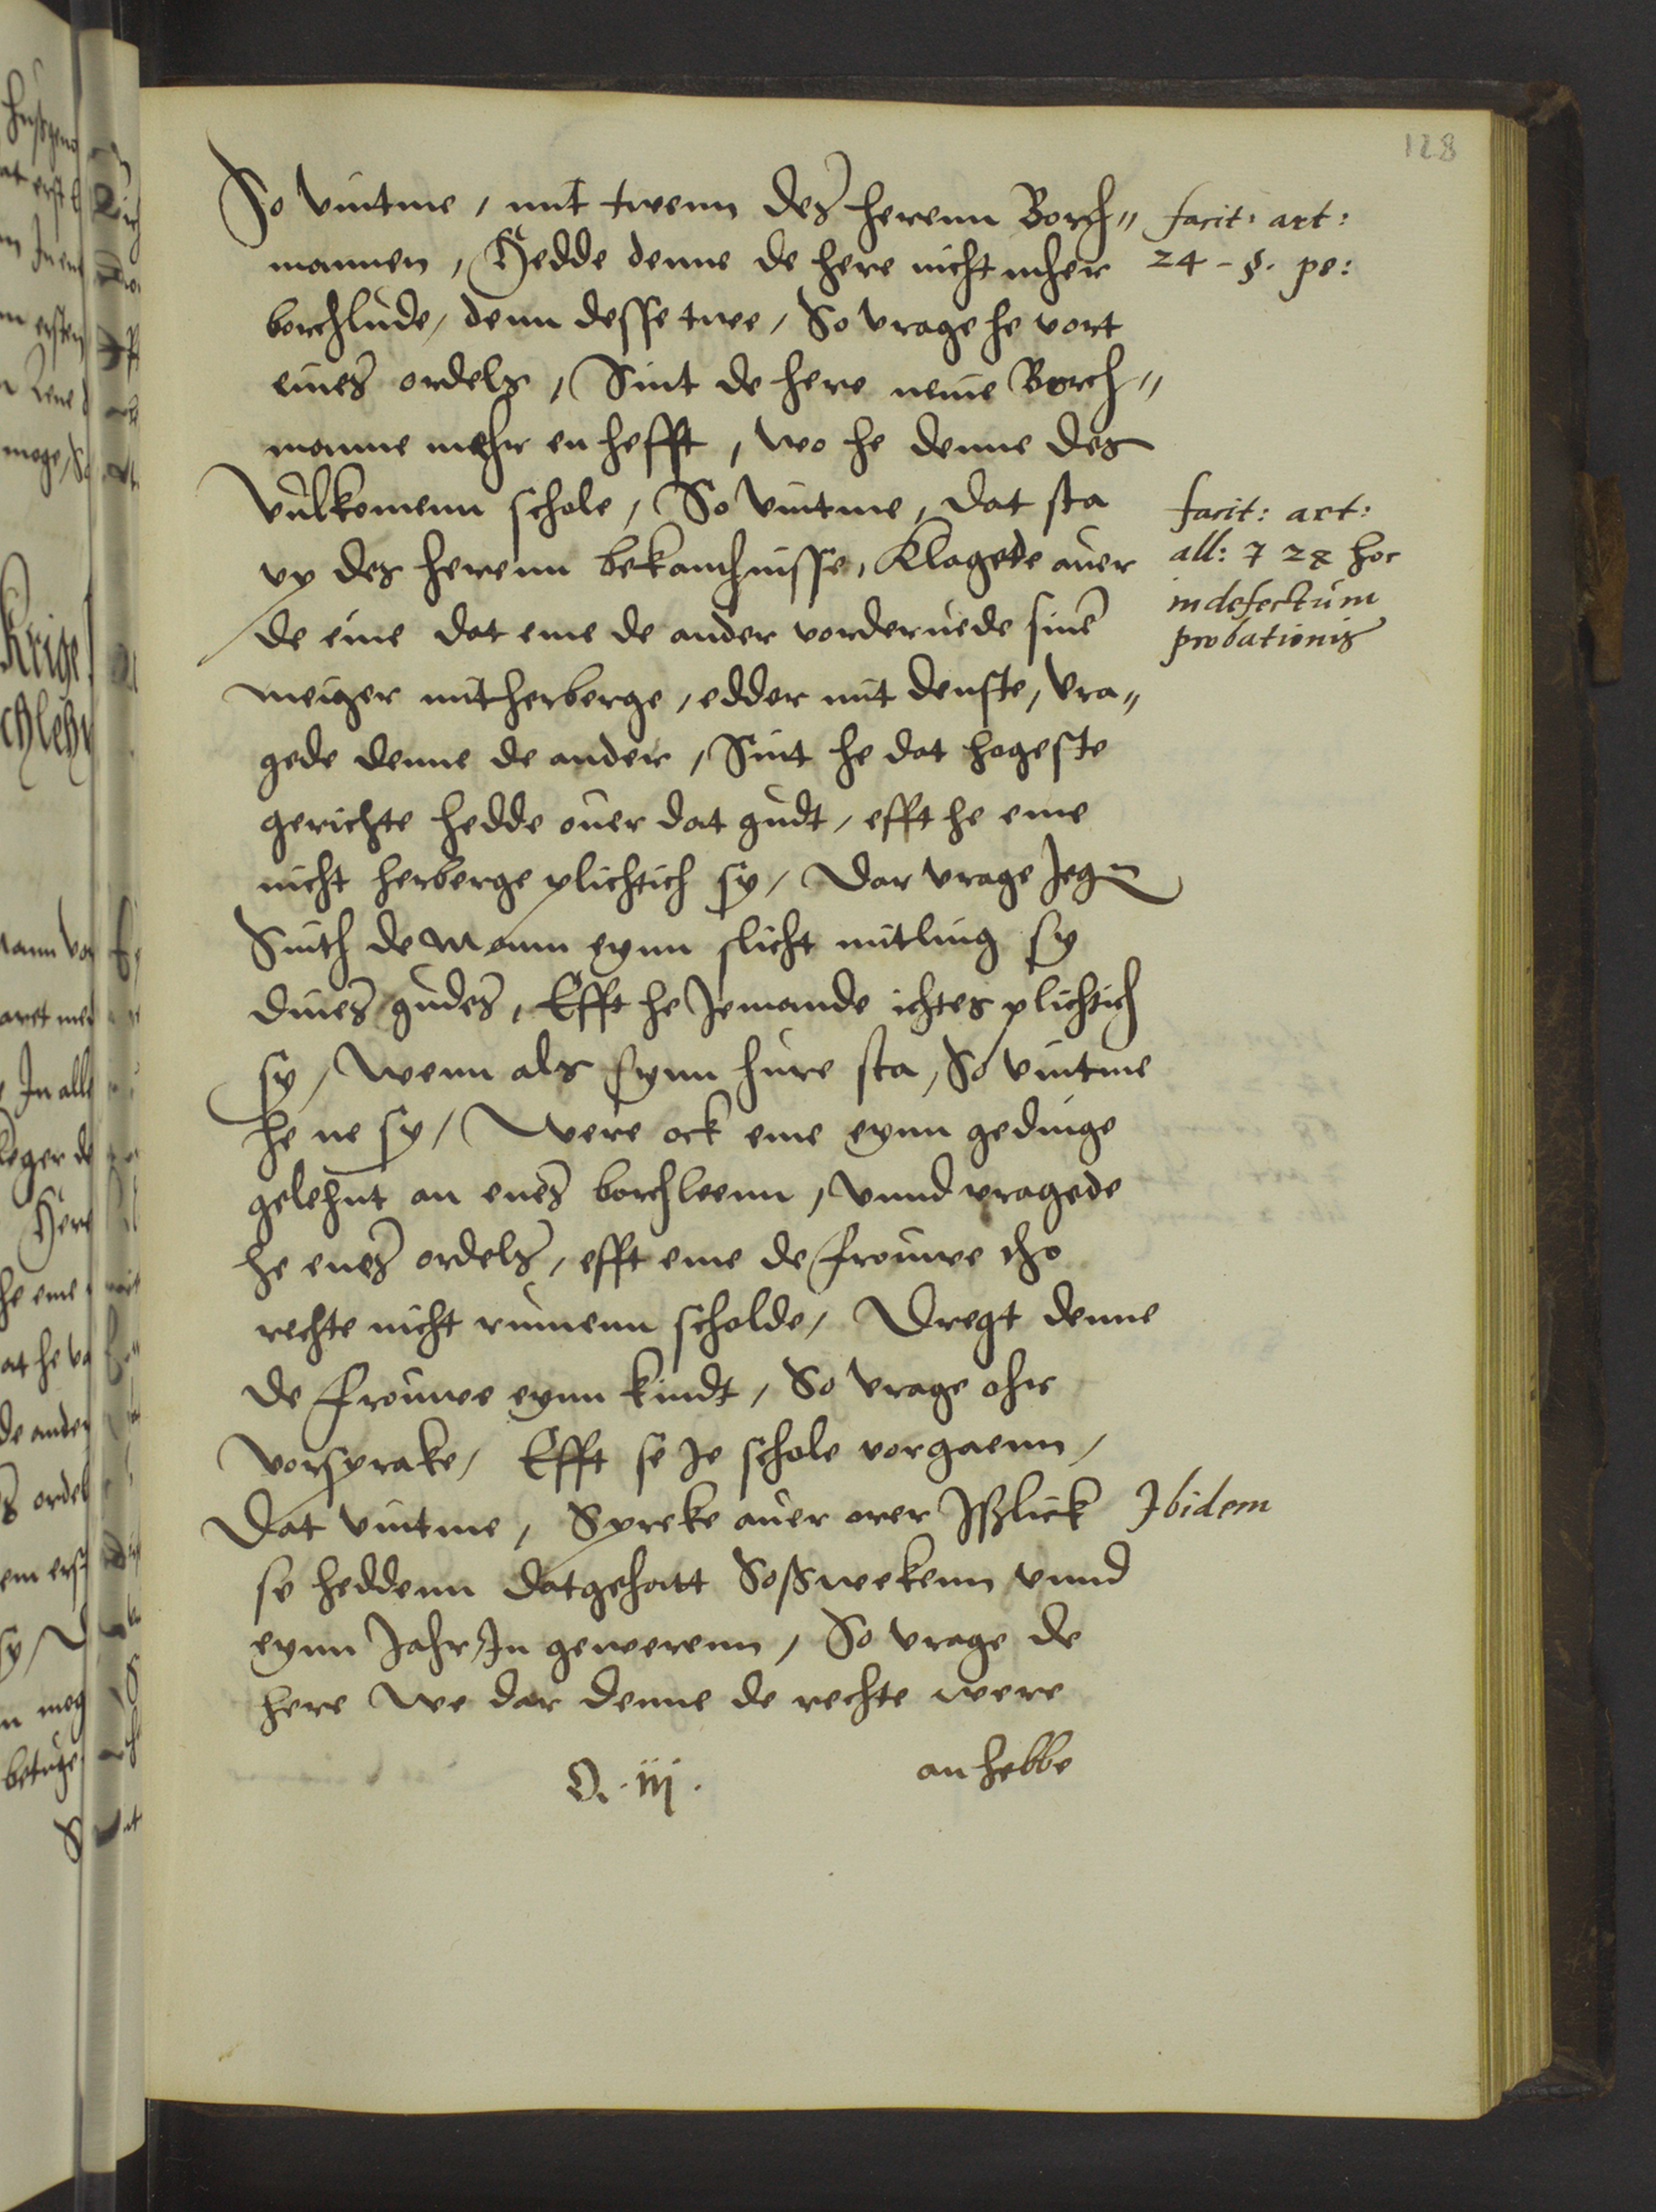 128
So vintme, mit twenn des herenn Borch„
mannen, Hedde denne de here nicht mher
borchlude, denn desse twe, So vrage he vort
eines ordels, Sint de here neine Borch„
manne mehr en hefft, wo he denne des
vulkomenn schole, So vintme, dat sta
vp des herenn bekanthnisse, Klagede auer
de eine dat eme de ander vorderuede sinē
meiger mit herberge, edder mit denste, vra„
gede denne de ander, Sint he dat hogeste
gerichte hedde ouer dat gudt, efft he eme
nicht herberge plichtich sy, Dar vrage Jegen
Sinth de Mann eynn slicht mitling sy
dines gudes, Efft he Jemande ichtes plichtich
sy, Wenn als synn hure sta, So vintme
he ne sy, Were ock eme eynn gedinge
gelehnt an enes borchleenn, vnnd vragede
he enes ordels, efft eme de frouwe tho
rechte nicht rumenn scholde, Dregt denne
de frouwe eynn kindt, So vrage ohr
vorsprake, Efft se Je schole vorgaenn,
Dat vintme, Spreke auer orer Jßlick
se heddenn dat gehatt Soß wekenn vnnd
eynn Jahr Jn gewerenn, So vrage de
here We dar denne de rechte were
an hebbe
O. iij.
facit: art:
24 - §. pe:
facit: art:
all: 7 28 hoc
in defectum
probationis
Jbidem